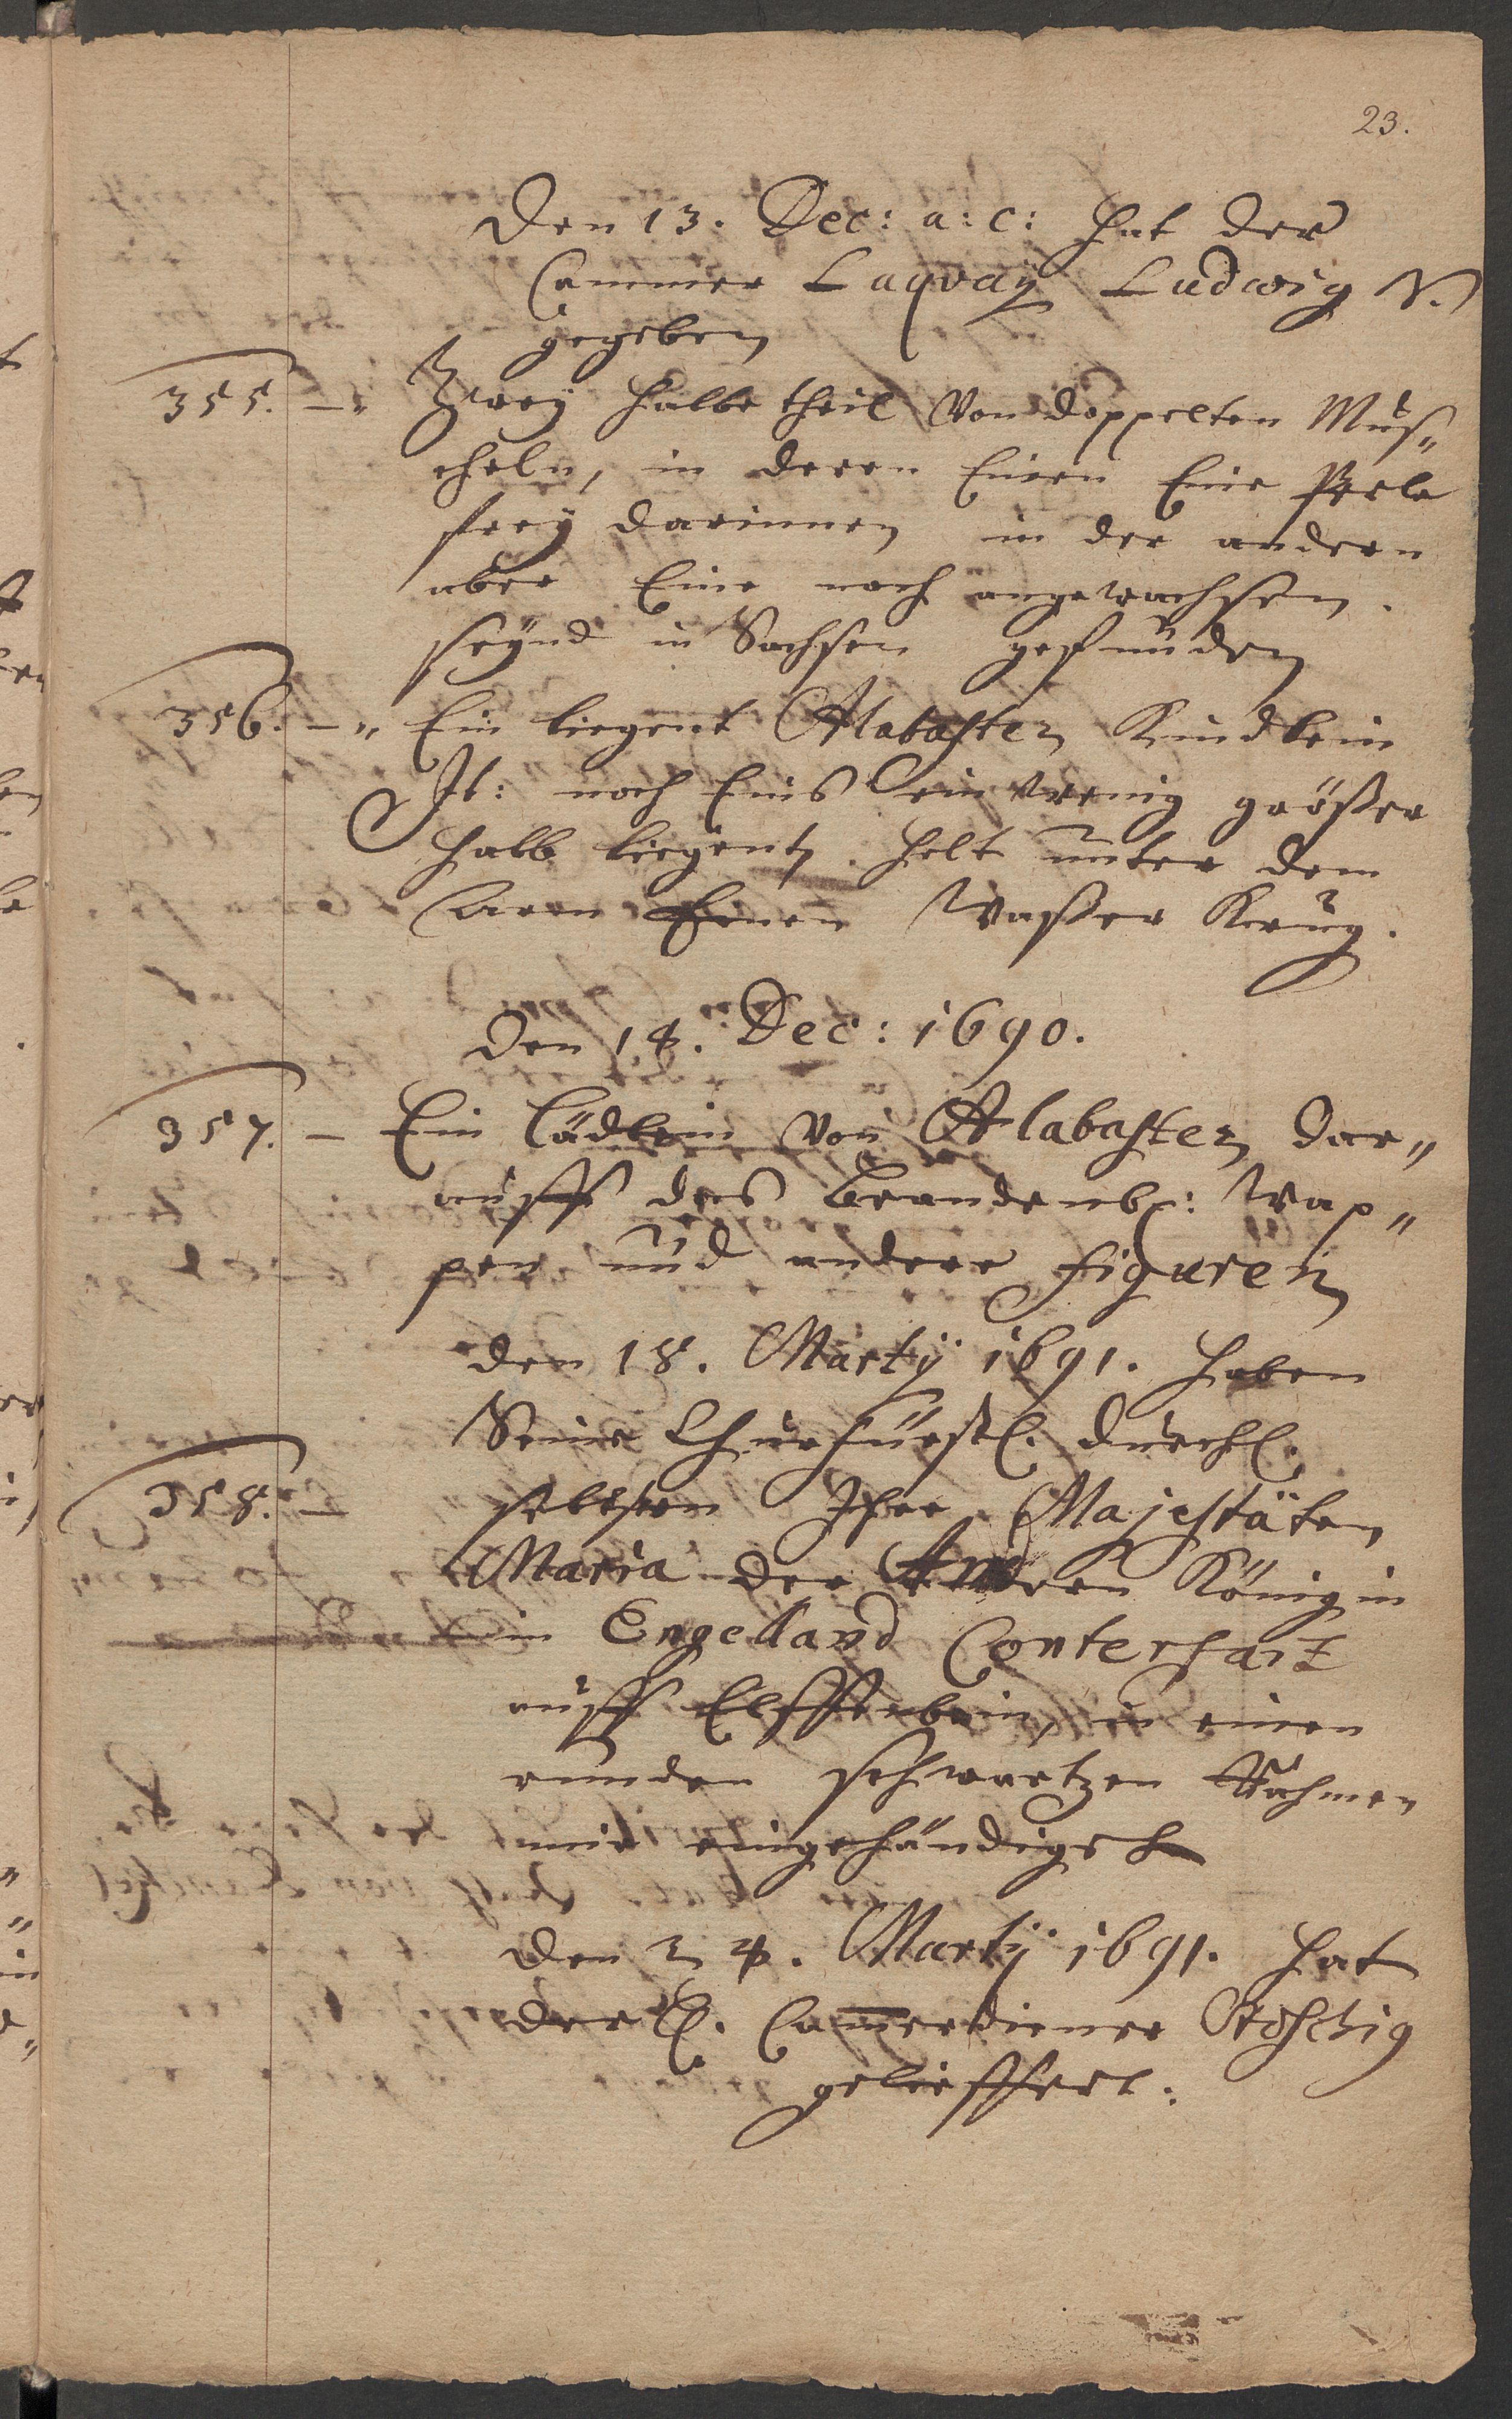 23.
Den 13. Dec: a: c: hat der
Cammer Laqvaÿ Ludwig N.
gegeben
355. — Zweÿ halbe theil Von doppelten Mus„
cheln, in deren Einen Eine Perle
freÿ darinnen in der andern
aber Eine noch angewachsen.
seÿnd in Sachsen gefunden
356. — Ein liegent Alabaster Kindlein
It: noch Eins ein wenig größer
halb liegent, helt unter dem
Arm Einen Waßer Krug.
Den 14. Dec: 1690.
357. — Ein Lädlein von Alabaster, dar„
auff das Brandenb: Wap„
pen und andere figuren
den 18. Martÿ 1691. haben
Seine Churfürstl. Durchl.
358. — selbsten Ihre Majestäten
Maria der Andern Königin
in Engelland Conterfait
auff Elffenbein, in einen
runden schwartzen Rahmen
mir eingehändiget
Den 24. Martÿ 1691. hat
der H. Cammerdiener Stoschig
gelieffert: